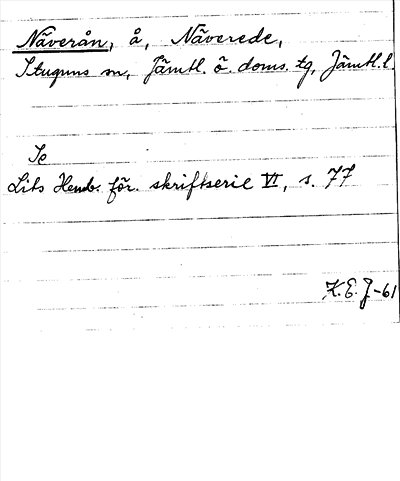 Näverån, å, Näverede,
Stuguns sn, Jämtl. ö. doms. tg, Jämtl. l.
Se
Lits Hemb. för. skriftserie VI, s. 77
K.E.J-61